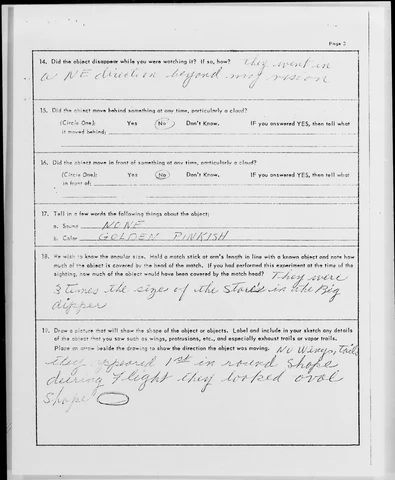 Page 3
14. Did the object disappear while you were watching it? If so, how? they went in
a NE direction beyond my vision
15. Did the object move behind something at any time, particularly a cloud?
(Circle One): Yes No Don't Know. IF you answered YES, then tell what
it moved behind:
16. Did the object move in front of something at any time, particularly a cloud?
(Circle One): Yes No Don't Know. IF you answered YES, then tell what
in front of:
17. Tell in a few words the following things about the object:
a. Sound NONE
b. Color GOLDEN PINKISH
18. We wish to know the angular size. Hold a match stick at arm's length in line with a known object and note how
much of the object is covered by the head of the match. If you had performed this experiment at the time of the
sighting, how much of the object would have been covered by the match head? They were
3 times the sizes of the Stars in the Big
dipper
19. Draw a picture that will show the shape of the object or objects. Label and include in your sketch any details
of the object that you saw such as wings, protrusions, etc., and especially exhaust trails or vapor trails.
Place an arrow beside the drawing to show the direction the object was moving. No Wings, tails
they appeared 1st in round shape
during flight they looked oval
shape